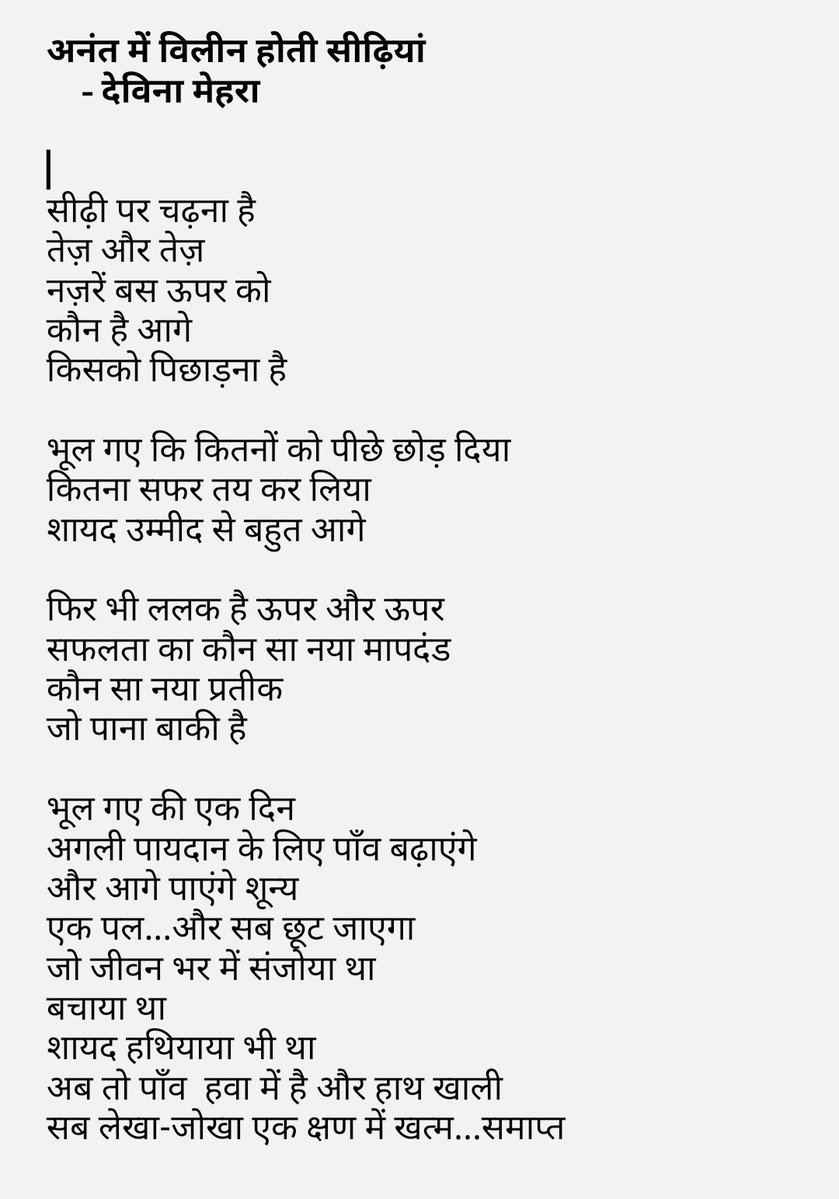 अनंत में विलीन होती सीढ़ियां
- देविना मेहरा
सीढ़ी पर चढ़ना है
तेज़ और तेज़
नज़रें बस ऊपर को
कौन है आगे
किसको पिछाड़ना है
भूल गए कि कितनों को पीछे छोड़ दिया
कितना सफर तय कर लिया
शायद उम्मीद से बहुत आगे
फिर भी ललक है ऊपर और ऊपर
सफलता का कौन सा नया मापदंड
कौन सा नया प्रतीक
जो पाना बाकी है
भूल गए की एक दिन
अगली पायदान के लिए पाँव बढ़ाएंगे
और आगे पाएंगे शून्य
एक पल...और सब छूट जाएगा
जो जीवन भर में संजोया था
बचाया था
शायद हथियाया भी था
अब तो पाँव  हवा में है और हाथ खाली
सब लेखा-जोखा एक क्षण में खत्म...समाप्त